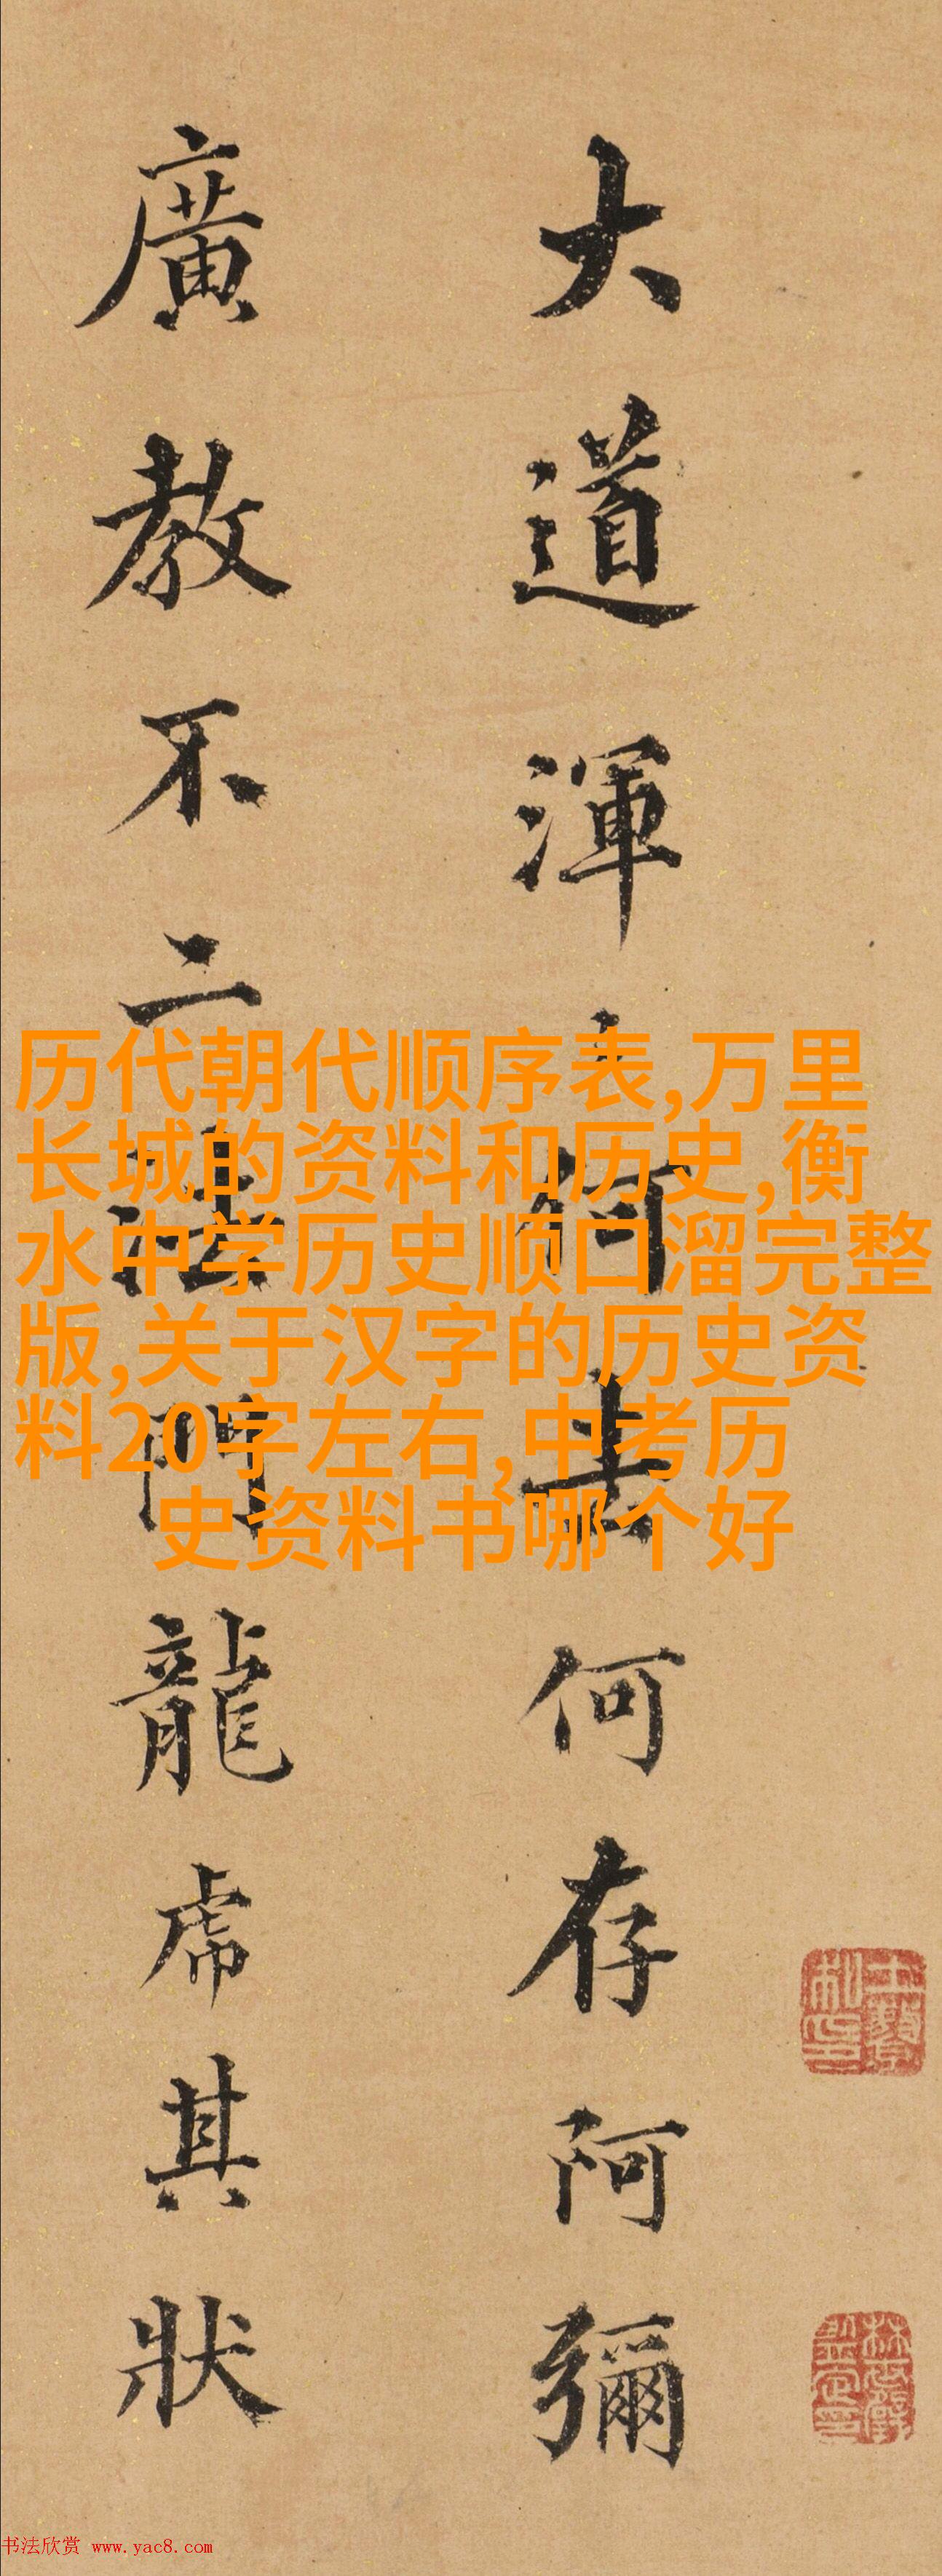 大道渾
何存阿彌
廣教不二法門龍虎其狀
历代朝代顺序表,万里
长城的资料和历史,衡
水中学历史顺口溜完整
版,关于汉字的历史资
料20字左右,中考历
史资料书哪个好
书法欣赏 www.yac8.com